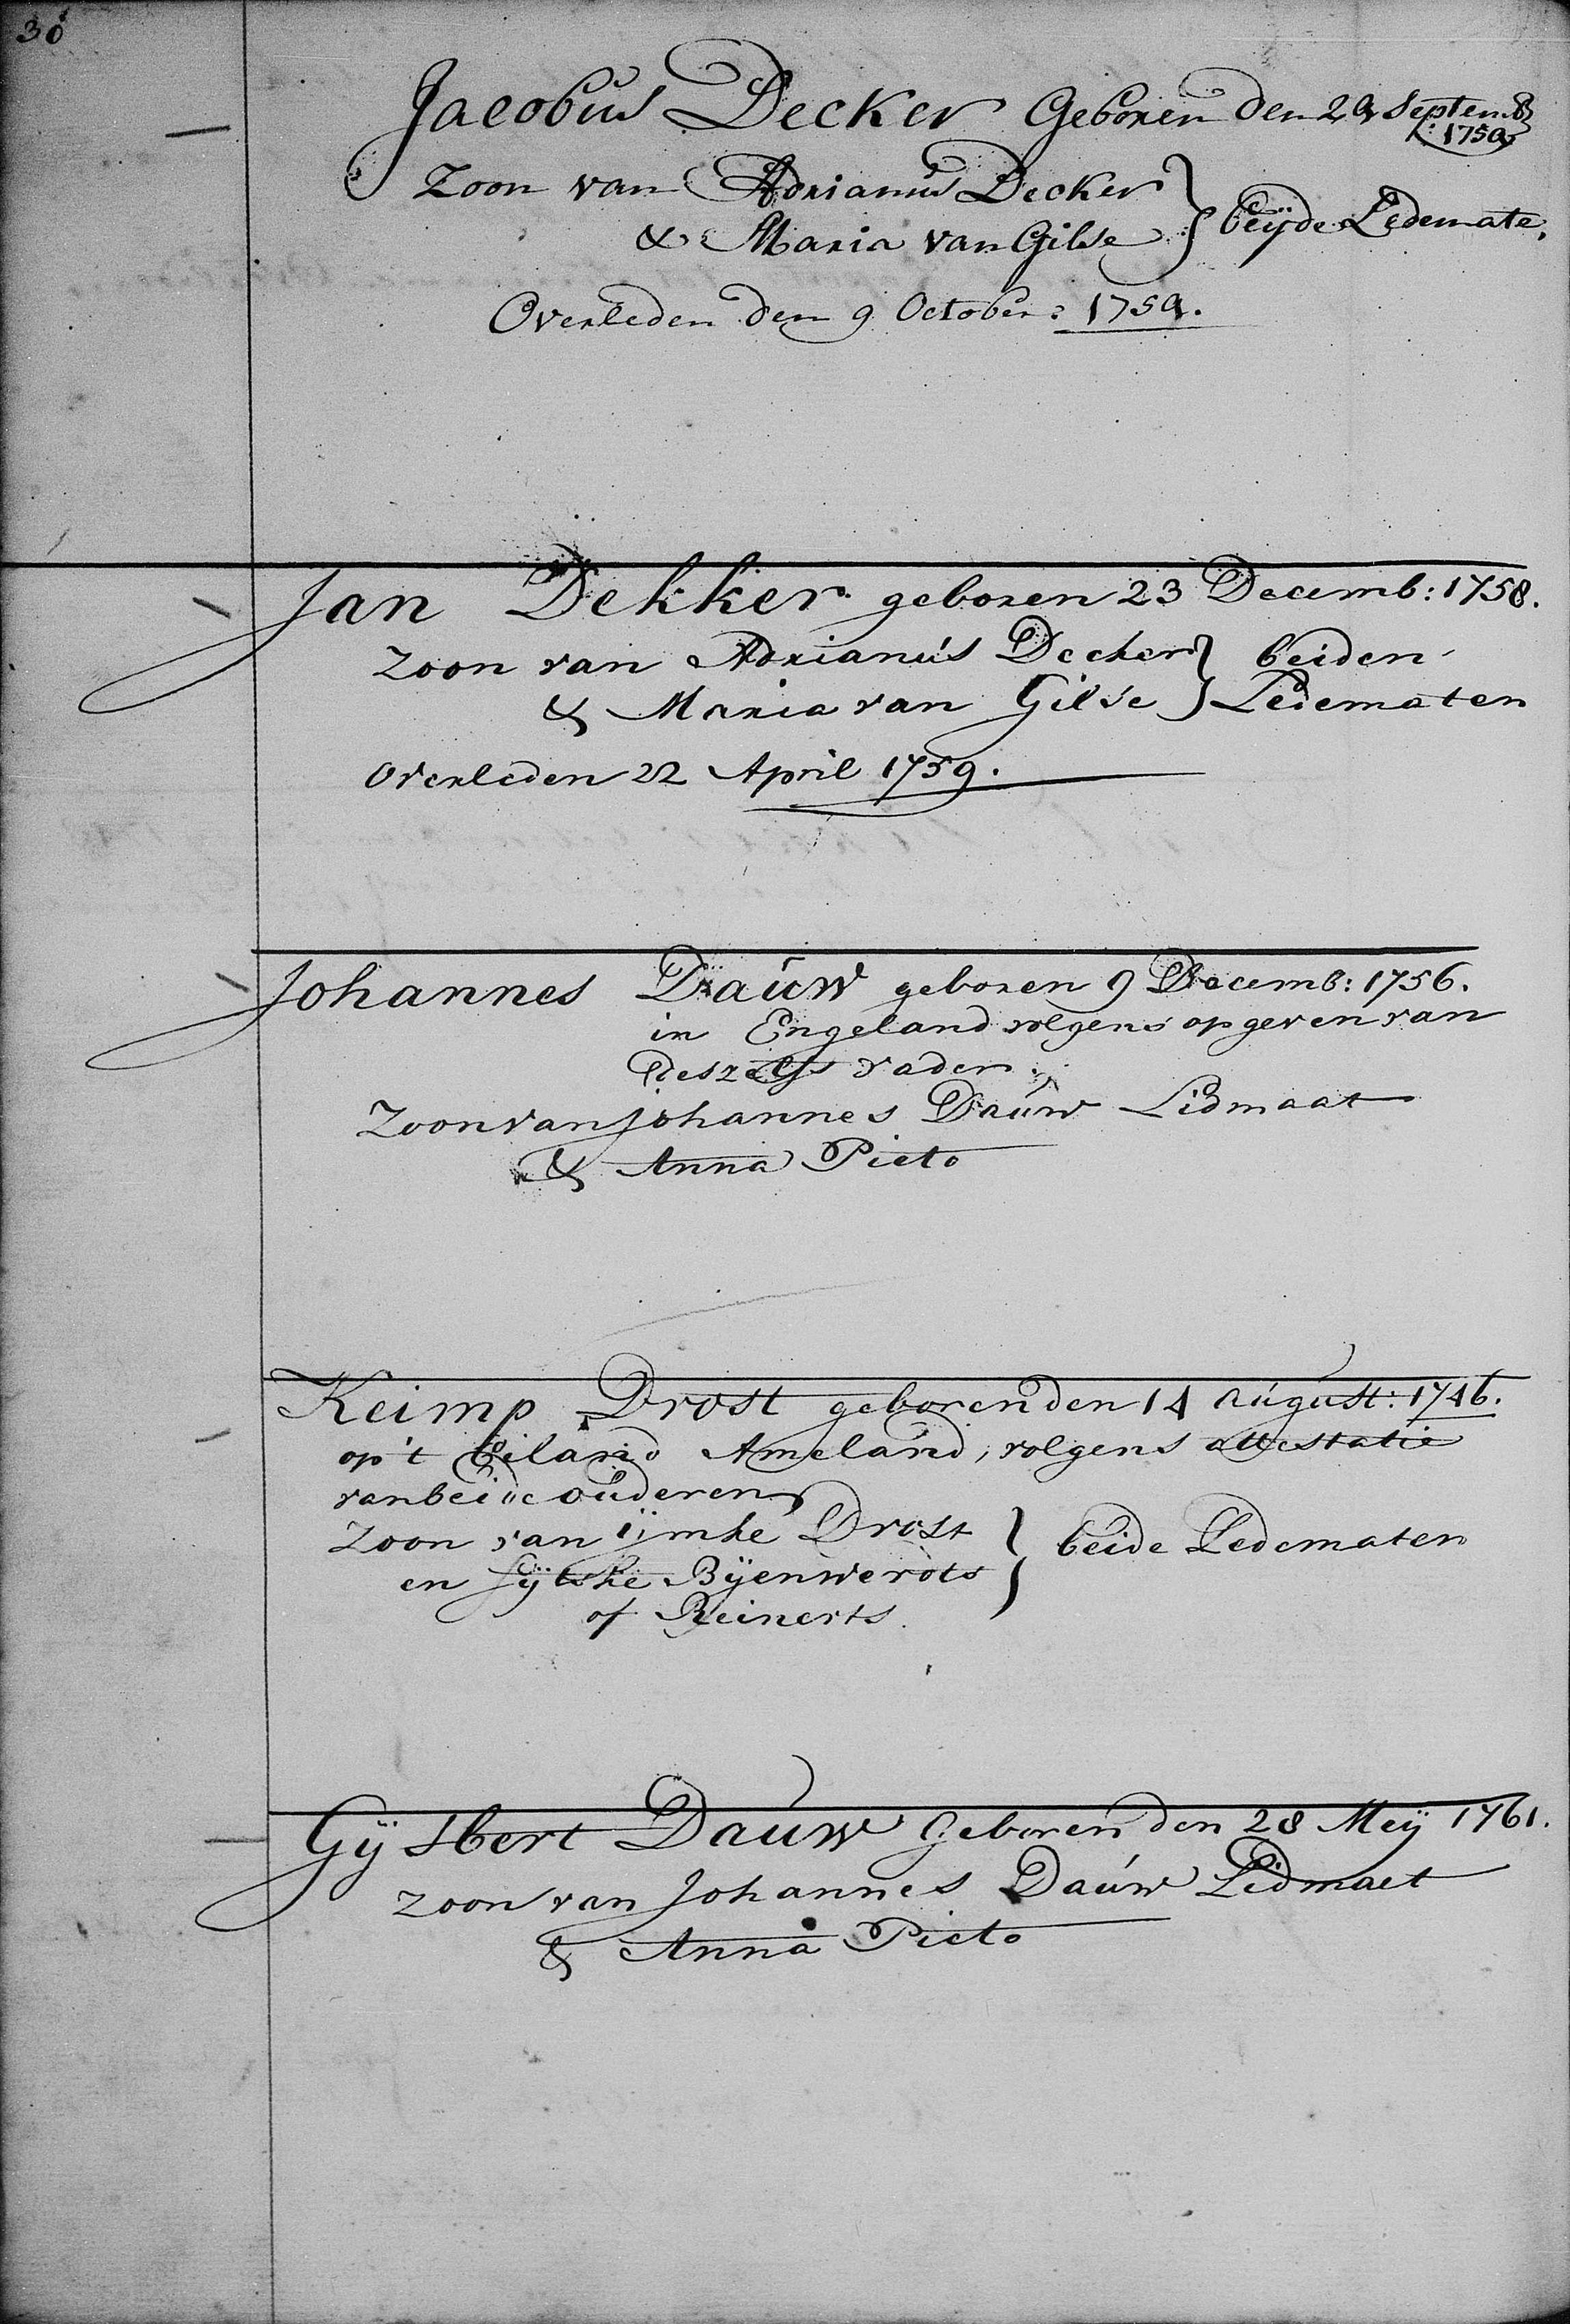 30
Jacobus Decker Geboren den 29 Septemb
: 1759
Zoon van Adrianus Decker
& Maria van Gilse } beÿde Ledemate,
Overleden den 9 October : 1759.
Jan Dekker geboren 23 Decemb: 1758.
zoon van Adrianús Decker } beiden
& Maria van Gilse } Ledematen
overleden 22 April 1759.
Johannes Daúw geboren 9 Decemb: 1756.
in Engeland volgens opgeven van
deszelfs vader.
Zoon van Johannes Daúw Lidmaat
& Anna Pieto
Keimp Drost geboren den 14 aúgust: 1746.
op't Eiland Ameland, volgens attestatie
van beide oúderen
zoon van ijmke Drost } beide Ledematen
en Sÿtske Bÿenwerots
of Reinerts.
Gÿsbert Daúw Geboren den 28 Meÿ 1761.
zoon van Johannes Daúw Lidmaet
& Anna Pieto